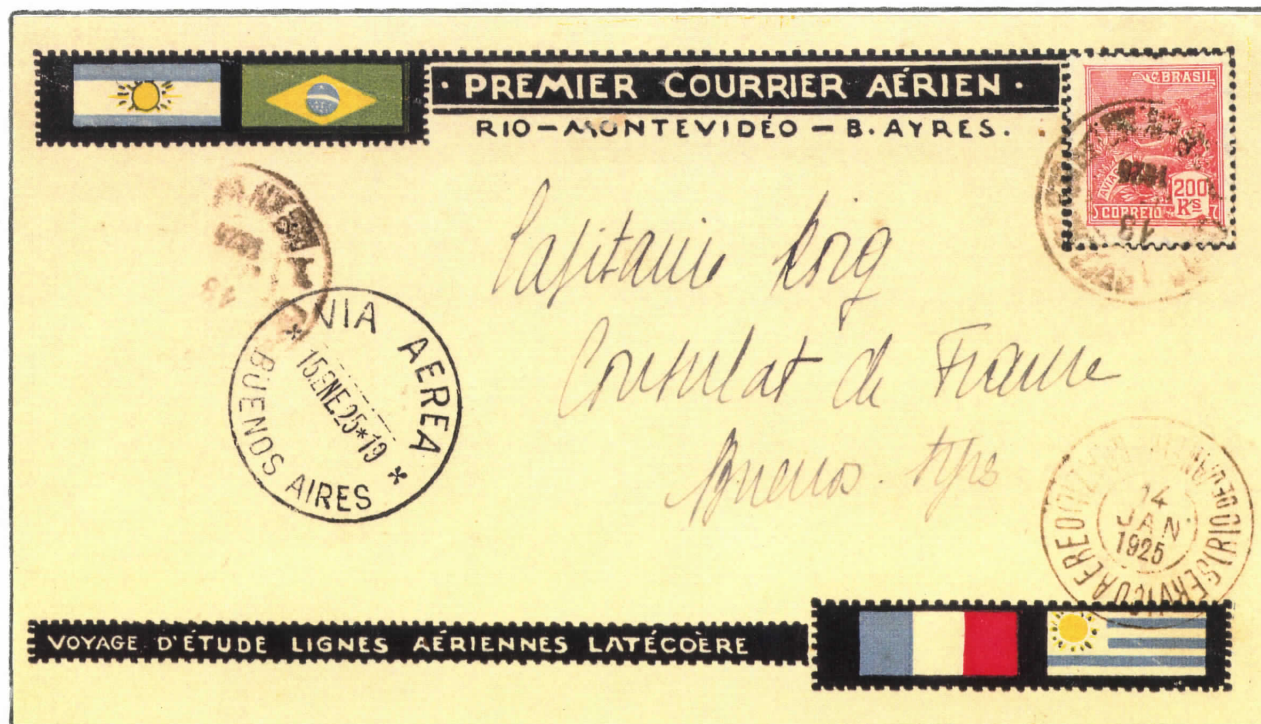 PREMIER COURRIER AÉRIEN
RIO-MONTEVIDÉO-B.AYRES.
BRASIL
200
Rs
CORREIO
Capitaine Roig
Consulat de France
Buenos Ayres
VIA AEREA
15.ENE.25*19
BUENOS AIRES
14
JAN
1925
SERVIÇO AEREO
VOYAGE D'ÉTUDE LIGNES AÉRIENNES LATÉCOÈRE